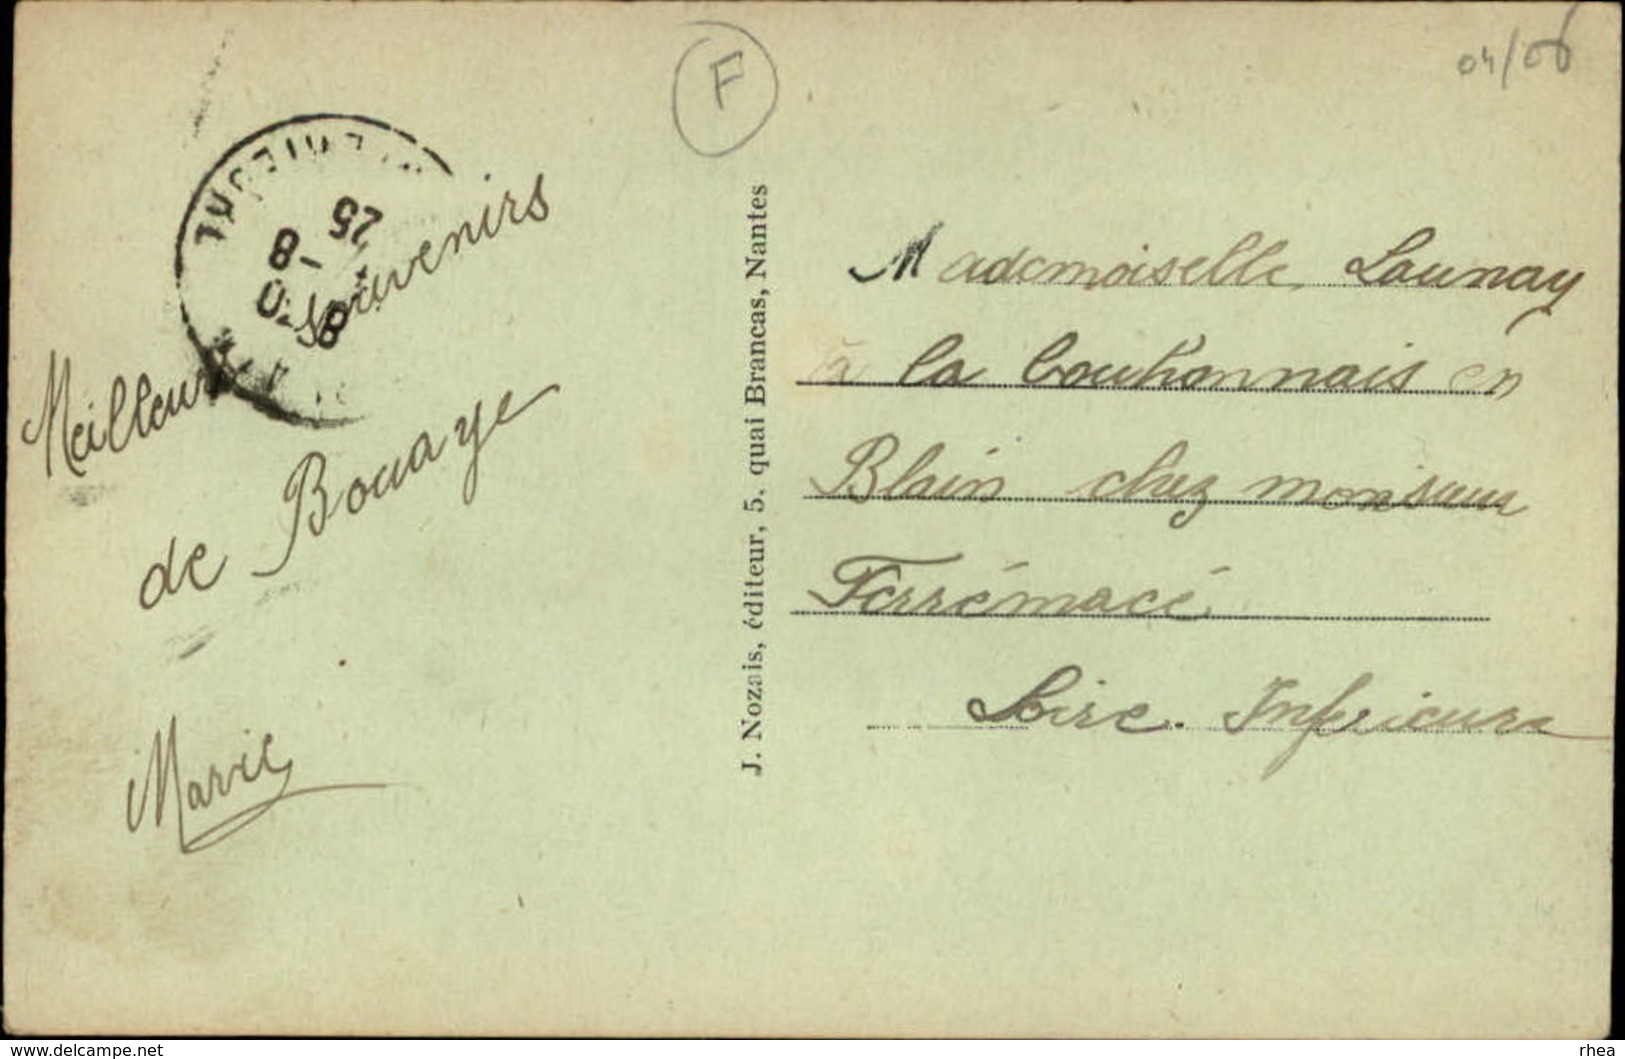 F
04/06
25
8
Meilleurs souvenirs
de Bouaye
Marie
J. Nozais, éditeur, 5, quai Brancas, Nantes
Mademoiselle Launay
à la en
Blain chez monsieur
Ferrémacé
Loire. Inferieure
www.delcampe.net
rhea